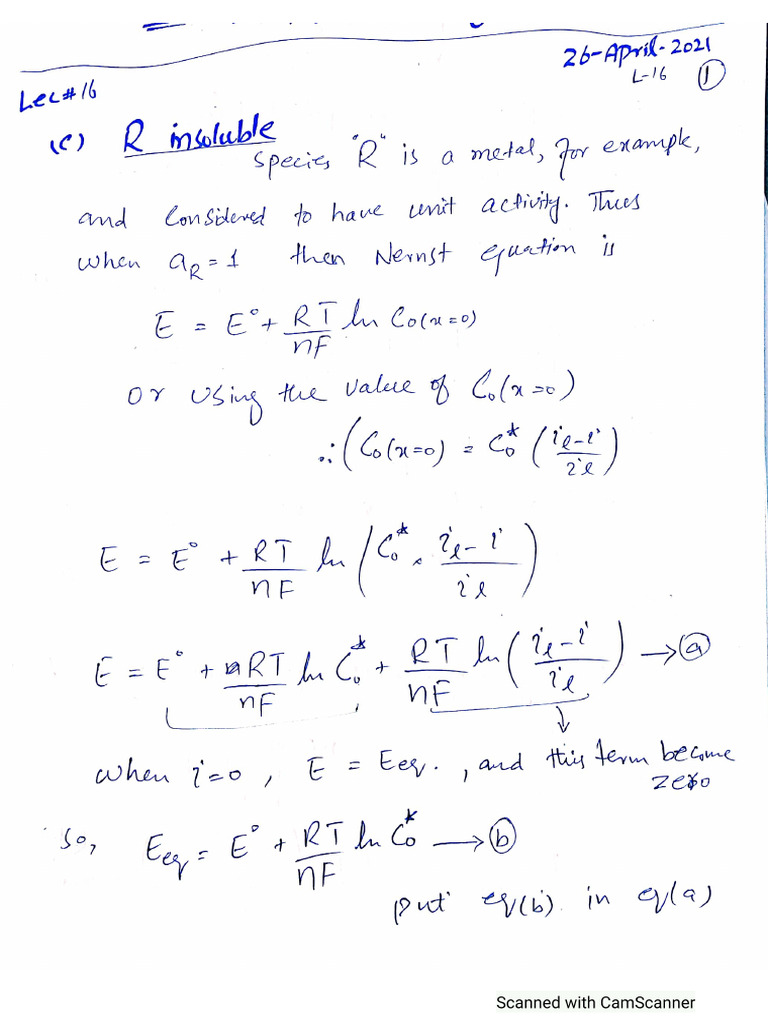 26-April-2021
L-16 ①
Lec#16
(c) R insoluble
Species "R" is a metal, for example,
and Considered to have unit activity. Thus
when a_R = 1 then Nernst equation is
E = E° + RT/nF ln Co(x=0)
Or using the value of Co(x=0)
∴ (Co(x=0) = Co* (il-i/il)
E = E° + RT/nF ln (Co* . il-i/il)
E = E° + RT/nF ln Co* + RT/nF ln (il-i/il) → ⓐ
when i=0, E = Eeq. , and this term become
zero
So, Eeq = E° + RT/nF ln Co* → ⓑ
put eq(b) in eq(a)
Scanned with CamScanner